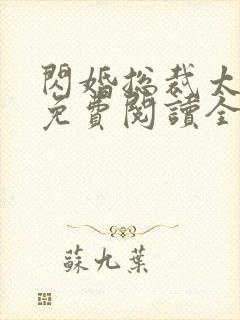 閃婚總裁太
免費閱讀全
蘇九葉